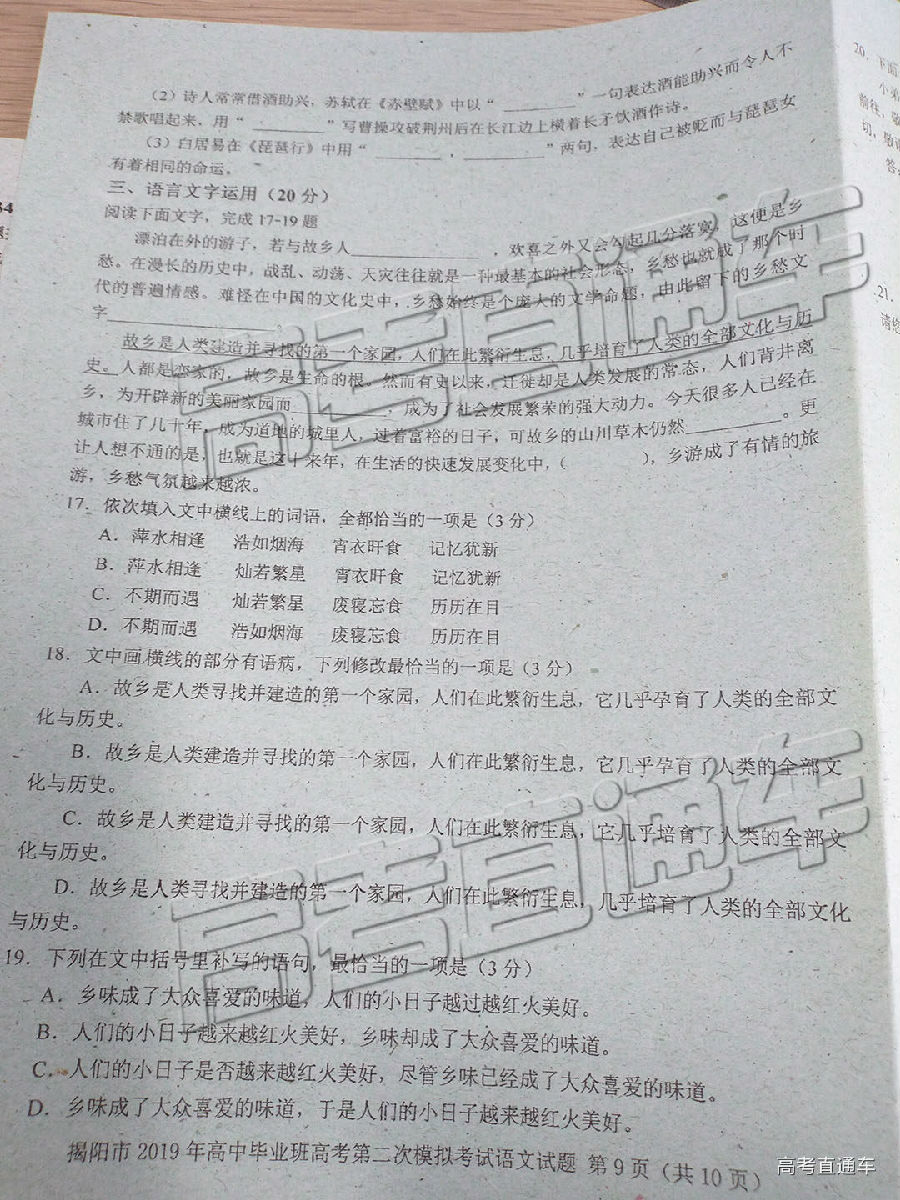 (2) 诗人常常借酒助兴，苏轼在《赤壁赋》中以“________”一句表达酒能助兴而令人不
禁歌唱起来，用“________”写曹操攻破荆州后在长江边上横着长矛饮酒作诗。
(3) 白居易在《琵琶行》中用“________，________”两句，表达自己被贬而与琵琶女
有着相同的命运。
三、语言文字运用（20分）
阅读下面文字，完成17-19题
漂泊在外的游子，若与故乡人____________，欢喜之外又会勾起几分落寞，这便是乡
愁。在漫长的历史中，战乱、动荡、天灾往往就是一种最基本的社会形态，乡愁也就成了那个时
代的普遍情感。难怪在中国的文化史中，乡愁始终是个庞大的文学命题，由此留下的乡愁文
字____________。
故乡是人类建造并寻找的第一个家园，人们在此繁衍生息，几乎培育了人类的全部文化与历
史。人都是恋家的，故乡是生命的根。然而有史以来，迁徙却是人类发展的常态，人们背井离
乡，为开辟新的美丽家园而__________，成为了社会发展繁荣的强大动力。今天很多人已经在
城市住了几十年，成为道地的城里人，过着富裕的日子，可故乡的山川草木仍然__________。更
让人想不通的是，也就是这十来年，在生活的快速发展变化中，（　　　），乡游成了有情的旅
游，乡愁气氛越来越浓。
17. 依次填入文中横线上的词语，全都恰当的一项是（3分）
A．萍水相逢　浩如烟海　宵衣旰食　记忆犹新
B．萍水相逢　灿若繁星　宵衣旰食　记忆犹新
C．不期而遇　灿若繁星　废寝忘食　历历在目
D．不期而遇　浩如烟海　废寝忘食　历历在目
18. 文中画横线的部分有语病，下列修改最恰当的一项是（3分）
A．故乡是人类寻找并建造的第一个家园，人们在此繁衍生息，它几乎孕育了人类的全部文
化与历史。
B．故乡是人类建造并寻找的第一个家园，人们在此繁衍生息，它几乎孕育了人类的全部文
化与历史。
C．故乡是人类建造并寻找的第一个家园，人们在此繁衍生息，它几乎培育了人类的全部文
化与历史。
D．故乡是人类寻找并建造的第一个家园，人们在此繁衍生息，几乎培育了人类的全部文化
与历史。
19. 下列在文中括号里补写的语句，最恰当的一项是（3分）
A．乡味成了大众喜爱的味道，人们的小日子越过越红火美好。
B．人们的小日子越来越红火美好，乡味却成了大众喜爱的味道。
C．人们的小日子是否越来越红火美好，尽管乡味已经成了大众喜爱的味道。
D．乡味成了大众喜爱的味道，于是人们的小日子越来越红火美好。
揭阳市2019年高中毕业班高考第二次模拟考试语文试题 第9页（共10页）
20. 下面
小弟
前往，敬
切，敬
答
21.
请给
高考直通车
高考直通车
高考直通车